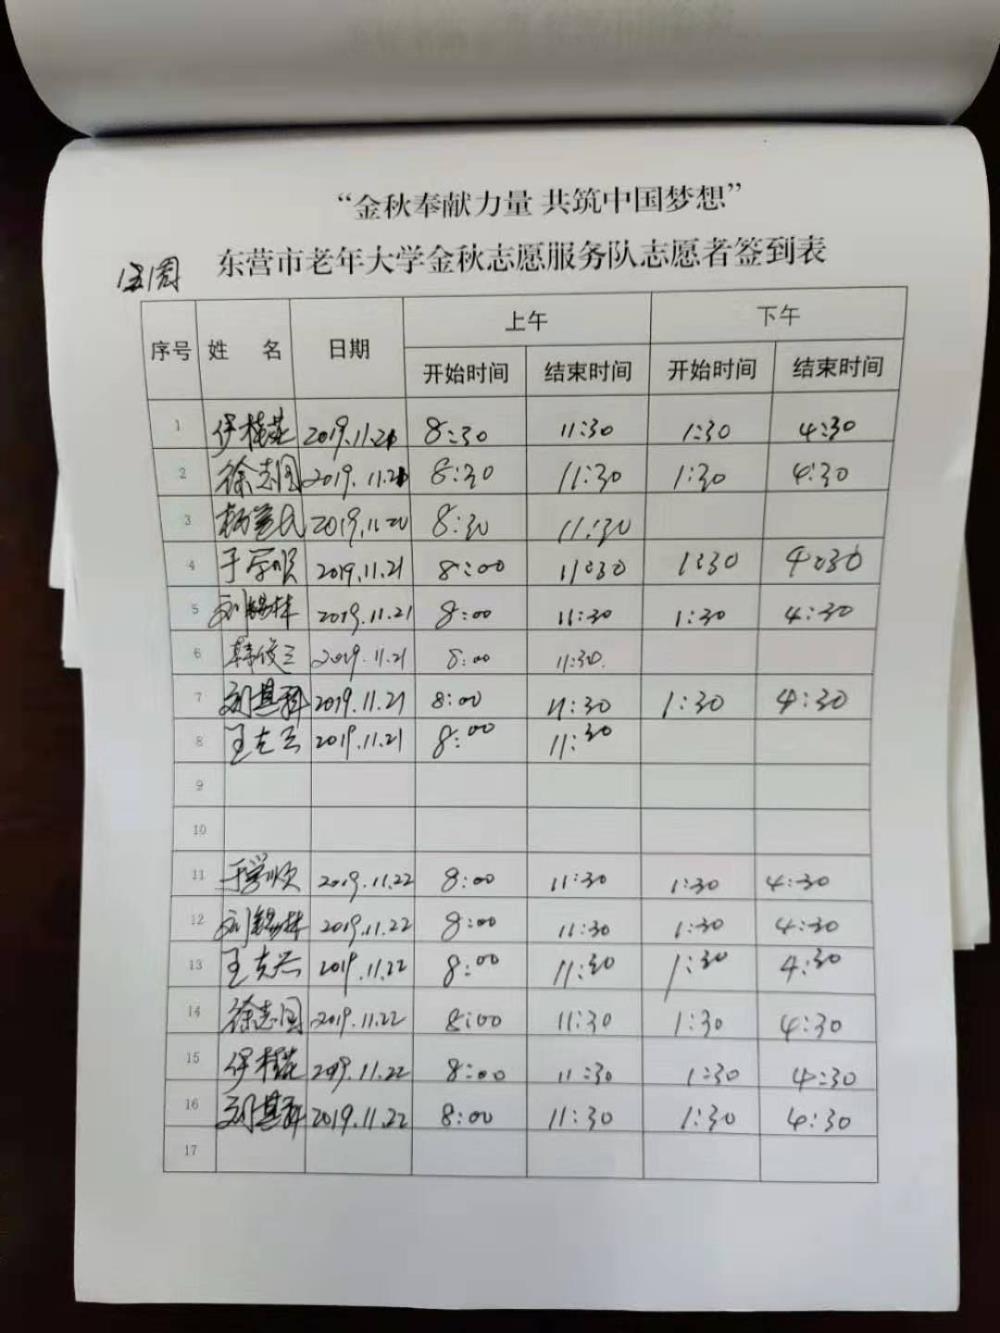 “金秋奉献力量 共筑中国梦想”
东营市老年大学金秋志愿服务队志愿者签到表
序号 姓 名 日期 上午 下午
开始时间 结束时间 开始时间 结束时间
1 伊桂花 2019.11.21 8:30 11:30 1:30 4:30
2 徐志国 2019.11.21 8:30 11:30 1:30 4:30
3 2019.11.20 8:30 11:30
4 于学顺 2019.11.21 8:00 11:30 1:30 4:30
5 刘锡林 2019.11.21 8:00 11:30 1:30 4:30
6 韩俊三 2019.11.21 8:00 11:30.
7 刘基科 2019.11.21 8:00 11:30 1:30 4:30
8 王克兴 2019.11.21 8:00 11:30
9
10
11 于学顺 2019.11.22 8:00 11:30 1:30 4:30
12 刘锡林 2019.11.22 8:00 11:30 1:30 4:30
13 王克兴 2019.11.22 8:00 11:30 1:30 4:30
14 徐志国 2019.11.22 8:00 11:30 1:30 4:30
15 伊桂花 2019.11.22 8:00 11:30 1:30 4:30
16 刘基科 2019.11.22 8:00 11:30 1:30 4:30
17